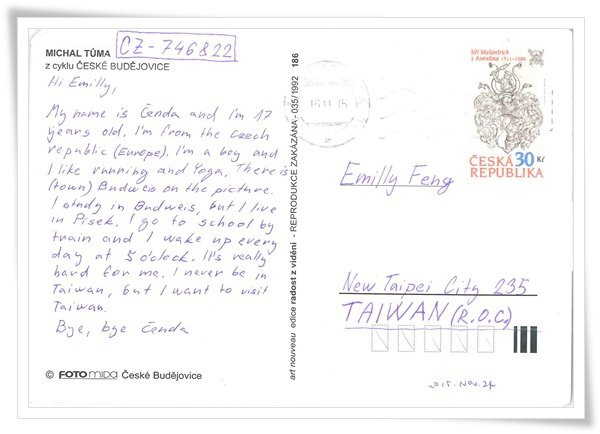 MICHAL TŮMA
z cyklu ČESKÉ BUDĚJOVICE
CZ-746822
Hi Emilly,
My name is Čenda and I'm 17
years old. I'm from the Czech
republic (Europe). I'm a boy and
I like running and Yoga. There is
(town) Budweis on the picture.
I study in Budweis, but I live
in Písek. I go to school by
train and I wake up every
day at 5 o'clock. It's really
hard for me. I never be in
Taiwan, but I want to visit
Taiwan.
Bye, bye Čenda
© FOTO MIDA České Budějovice
art nouveau edice radost z vidění - REPRODUKCE ZAKÁZÁNA - 035/1992 186
16.11.15
Jiří Melantrich
z Aventina 1511-1580
ČESKÁ 30 Kč
REPUBLIKA
Emilly Feng
New Taipei City 235
TAIWAN (R.O.C.)
2015. NOV. 24